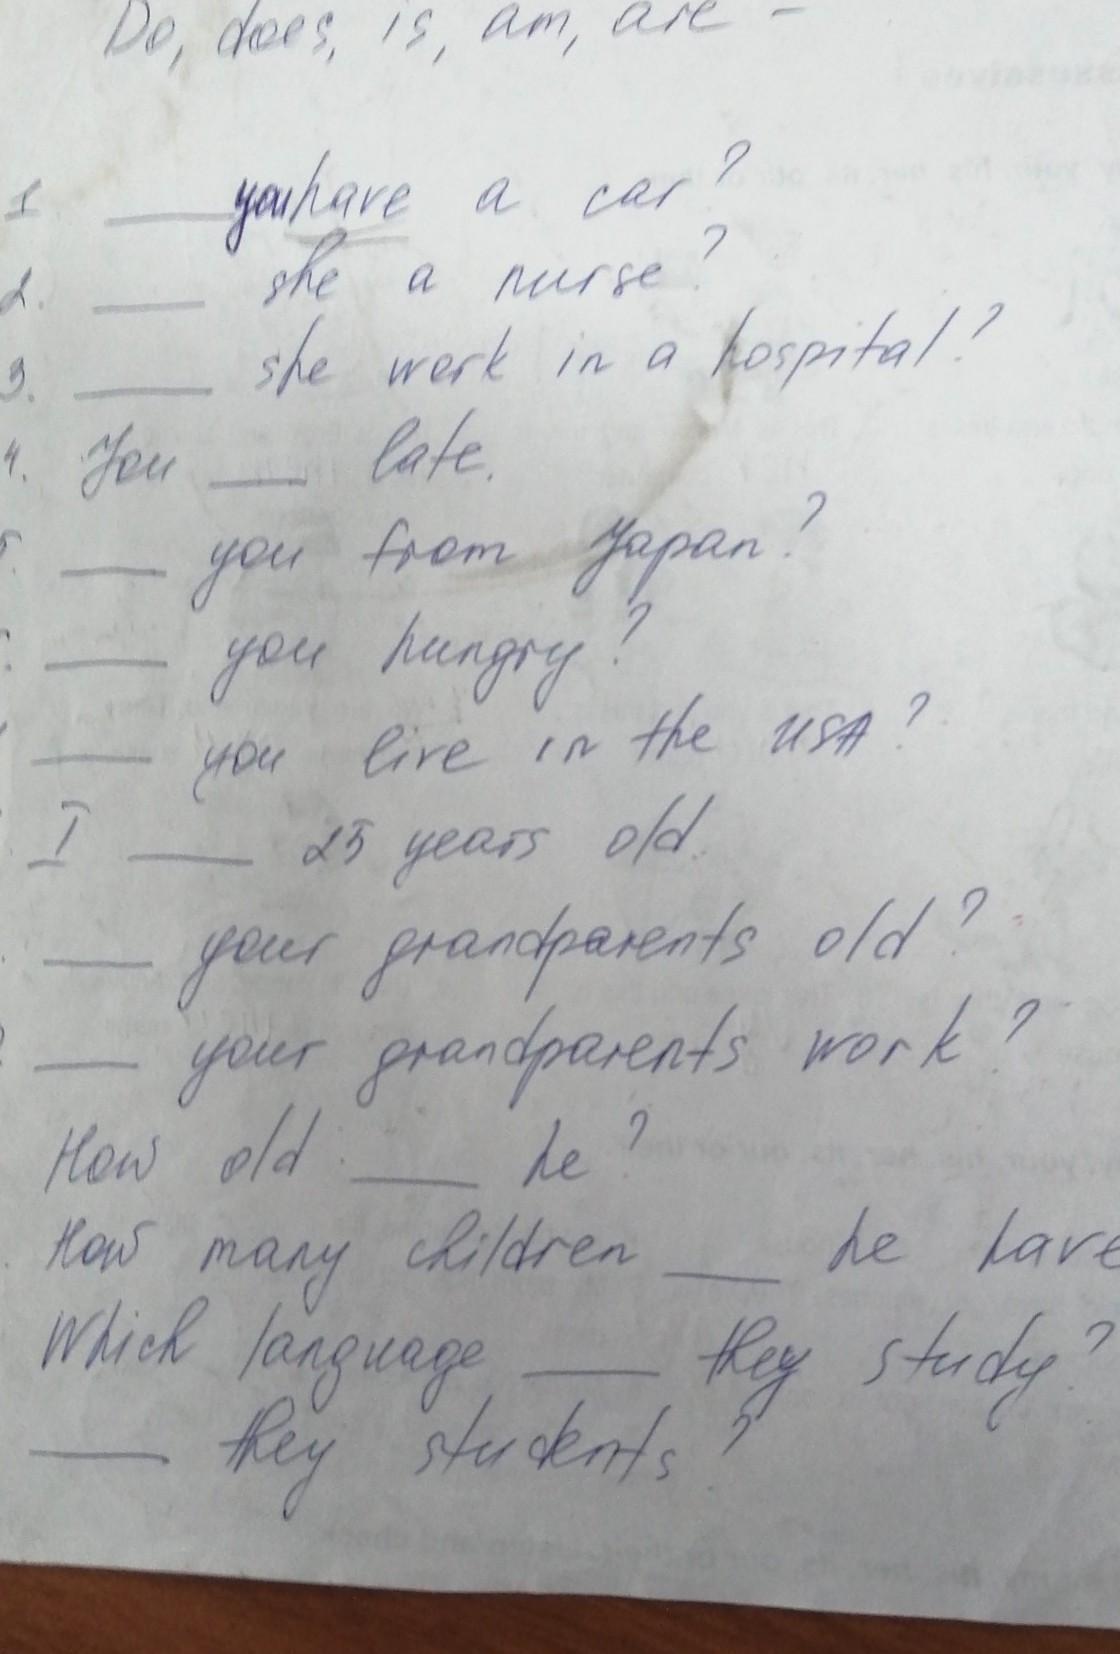 Do, does, is, am, are -
1 ____ you have a car?
2. ____ she a nurse?
3. ____ she work in a hospital?
4. You ____ late.
5. ____ you from Japan?
____ you hungry?
____ you live in the USA?
I ____ 25 years old.
____ your grandparents old?
____ your grandparents work?
How old ____ he?
How many children ____ he have
Which language ____ they study?
____ they students?